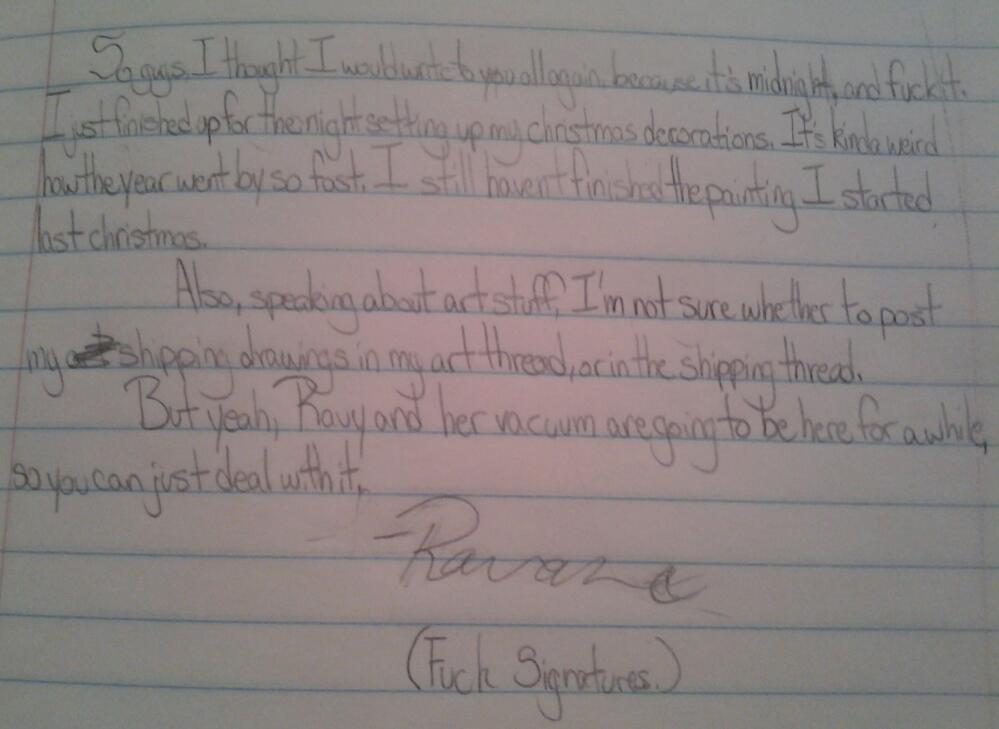 So guys, I thought I would write to you all again, because it's midnight, and fuck it.
I just finished up for the night setting up my christmas decorations. It's kinda weird
how the year went by so fast. I still haven't finished the painting I started
last christmas.
Also, speaking about art stuff, I'm not sure whether to post
my shipping drawings in my art thread, or in the shipping thread.
But yeah, Ravy and her vacuum are going to be here for awhile,
so you can just deal with it.
(Fuck Signatures.)